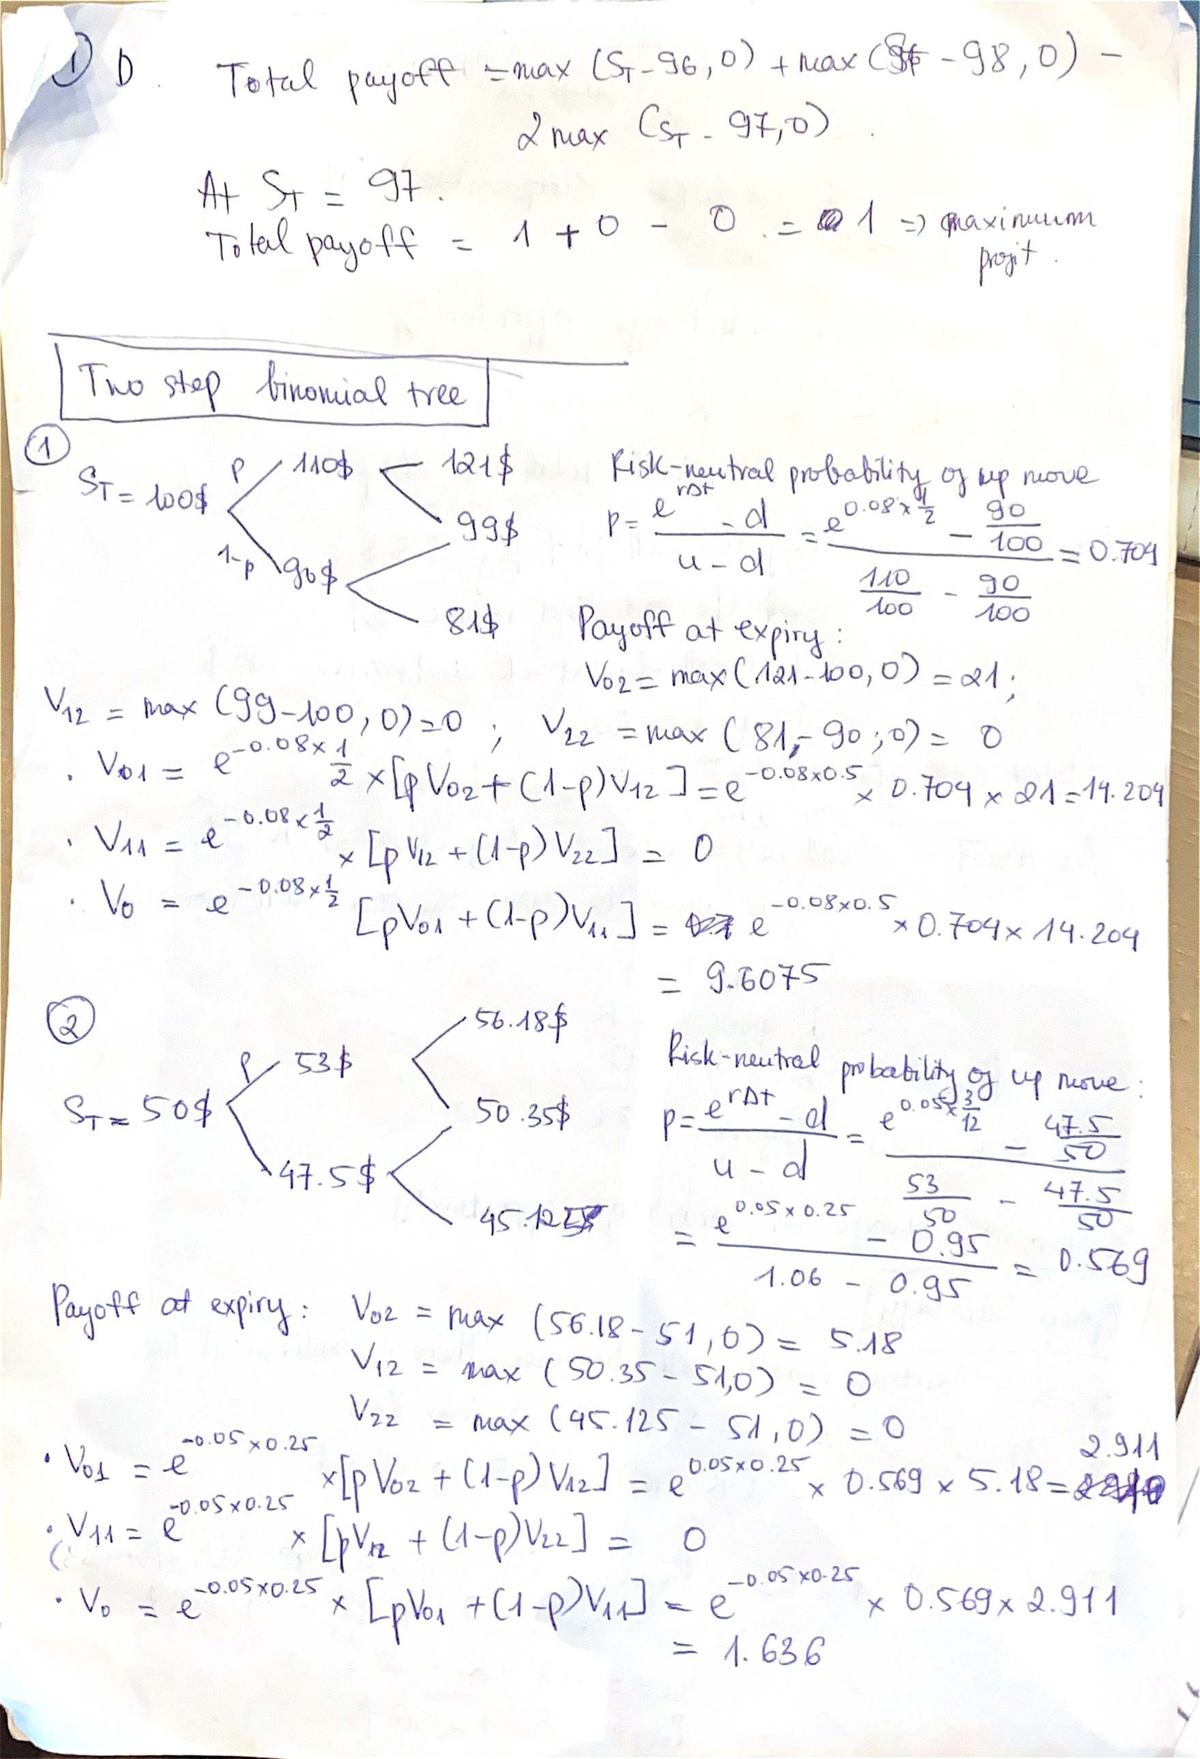 ① D. Total payoff = max (S_T - 96, 0) + max (S_T - 98, 0) -
2 max (S_T - 97, 0).
At S_T = 97.
Total payoff = 1 + 0 - 0 = 1 => maximum
profit.
Two step binomial tree
①
S_T = 100$
p
1-p
110$
90$
121$
99$
81$
Risk-neutral probability of up move
p = (e^{rΔt} - d)/(u - d) = (e^{0.08 × 1/2} - 90/100)/(110/100 - 90/100) = 0.704
Payoff at expiry:
V02 = max (121-100, 0) = 21;
V12 = max (99-100, 0) = 0 ; V22 = max (81 - 90 ; 0) = 0
. V01 = e^{-0.08 × 1/2} × [p V02 + (1-p) V12] = e^{-0.08×0.5} × 0.704 × 21 = 14.204
. V11 = e^{-0.08 × 1/2} × [p V12 + (1-p) V22] = 0
. V0 = e^{-0.08 × 1/2} [pV01 + (1-p)V11] = e^{-0.08×0.5} × 0.704 × 14.204
= 9.6075
②
S_T = 50$
p
53$
47.5$
56.18$
50.35$
45.125
Risk-neutral probability of up move:
p = (e^{rΔt} - d)/(u - d) = (e^{0.05 × 3/12} - 47.5/50)/(53/50 - 47.5/50)
= (e^{0.05 × 0.25} - 0.95)/(1.06 - 0.95) = 0.569
Payoff at expiry: V02 = max (56.18 - 51, 0) = 5.18
V12 = max (50.35 - 51,0) = 0
V22 = max (45.125 - 51, 0) = 0
. V01 = e^{-0.05 × 0.25} × [p V02 + (1-p) V12] = e^{0.05×0.25} × 0.569 × 5.18 = 2.911
. V11 = e^{-0.05 × 0.25} × [pV12 + (1-p)V22] = 0
. V0 = e^{-0.05×0.25} × [pV01 + (1-p)V11] = e^{-0.05×0.25} × 0.569 × 2.911
= 1.636